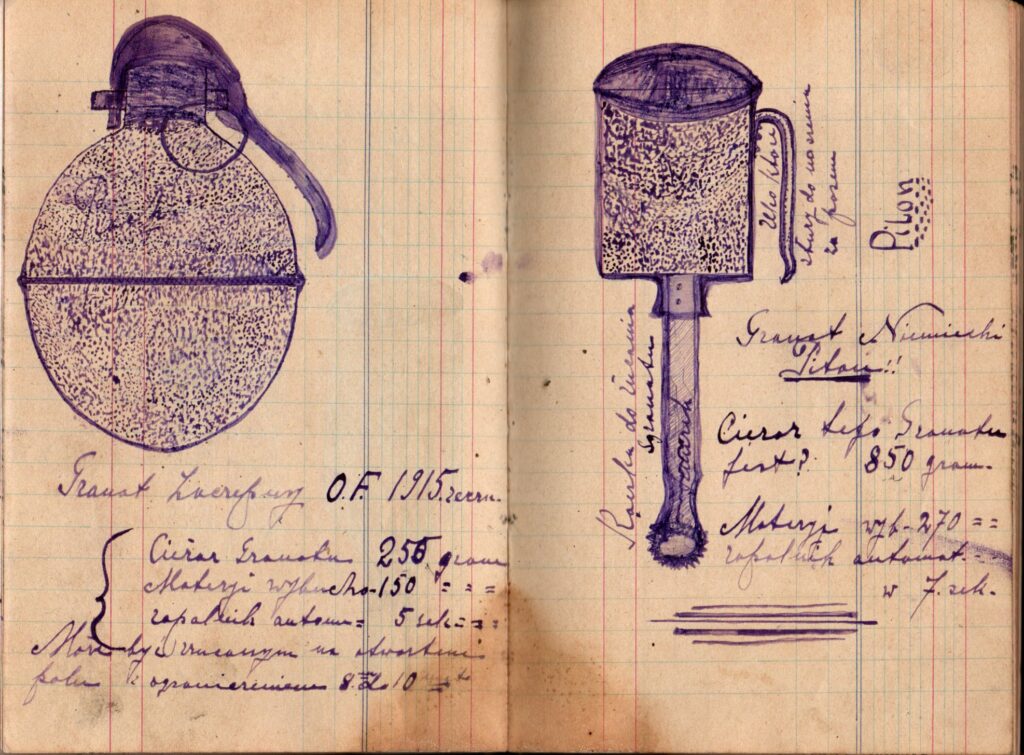 Granat Zaczepny O.F. 1915.
Ciężar Granatu 255 gram
Materji wybucho- 150 = = =
zapalnik autom= 5 sek = = =
Może być rzucanym na otwartem
polu z ograniczeniem 8 do 10
Ucho które
służy do noszenia
za pasem
Piton
Rączka do rzucania
granatu
Granat Niemiecki
Piton!!
Ciężar tego Granatu
jest? 850 gram-
Materji wyb- 270 = =
zapalnik automat.
w 7. sek-